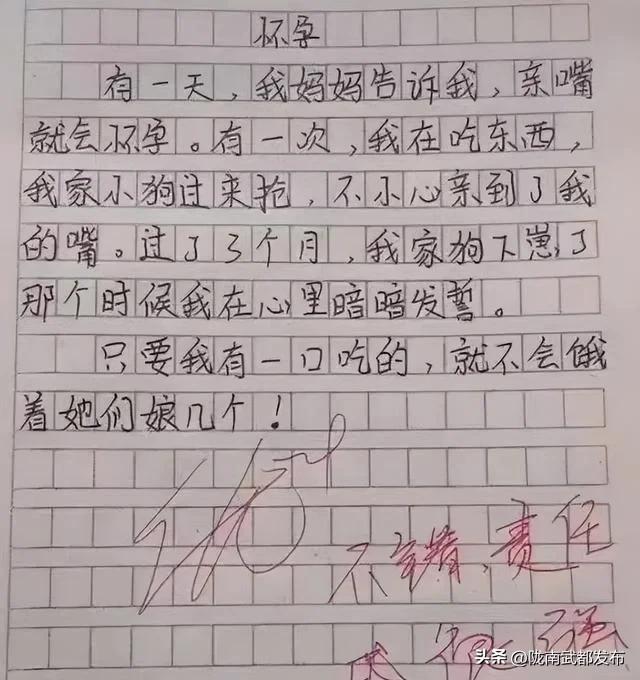 怀孕
有一天，我妈妈告诉我，亲嘴
就会怀孕。有一次，我在吃东西，
我家小狗过来抢，不小心亲到了我
的嘴。过了3个月，我家狗下崽了
那个时候我在心里暗暗发誓。
只要我有一口吃的，就不会饿
着她们娘几个！
不错，责任
强
头条 @陇南武都发布